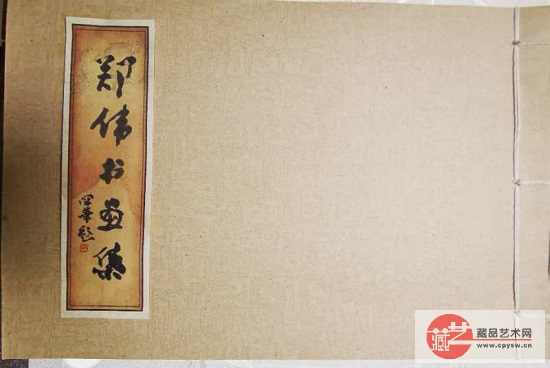 郑伟书画集
華题
藏艺
藏品艺术网
www.cpysw.cn